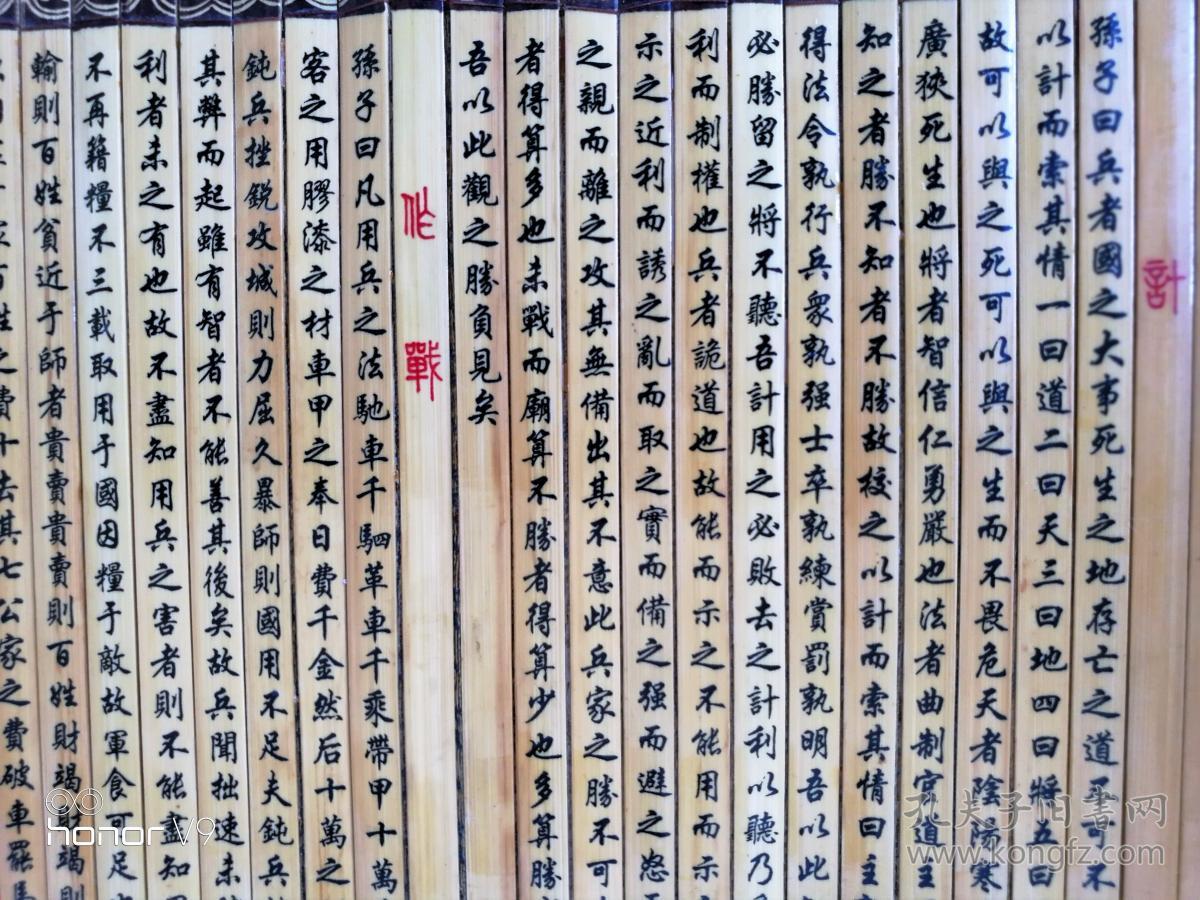 計
孫子曰兵者國之大事死生之地存亡之道不可不
以計而索其情一曰道二曰天三曰地四曰將五曰
故可以與之死可以與之生而不畏危天者陰陽寒
廣狹死生也將者智信仁勇嚴也法者曲制官道主
知之者勝不知者不勝故校之以計而索其情曰主
得法令孰行兵衆孰强士卒孰練賞罰孰明吾以此
必勝留之將不聽吾計用之必敗去之計利以聽乃
利而制權也兵者詭道也故能而示之不能用而示
示之近利而誘之亂而取之實而備之强而避之怒
之親而離之攻其無備出其不意此兵家之勝不可
者得算多也未戰而廟算不勝者得算少也多算勝
吾以此觀之勝負見矣
作戰
孫子曰凡用兵之法馳車千駟革車千乘帶甲十萬
客之用膠漆之材車甲之奉日費千金然后十萬之
鈍兵挫銳攻城則力屈久暴師則國用不足夫鈍兵
其弊而起雖有智者不能善其後矣故兵聞拙速未
利者未之有也故不盡知用兵之害者則不能盡知
不再籍糧不三載取用于國因糧于敵故軍食可足
輸則百姓貧近于師者貴賣貴賣則百姓財竭財竭則
之費十去其七公家之費破車罷馬
honor V9
孔夫子旧書网
www.kongfz.com